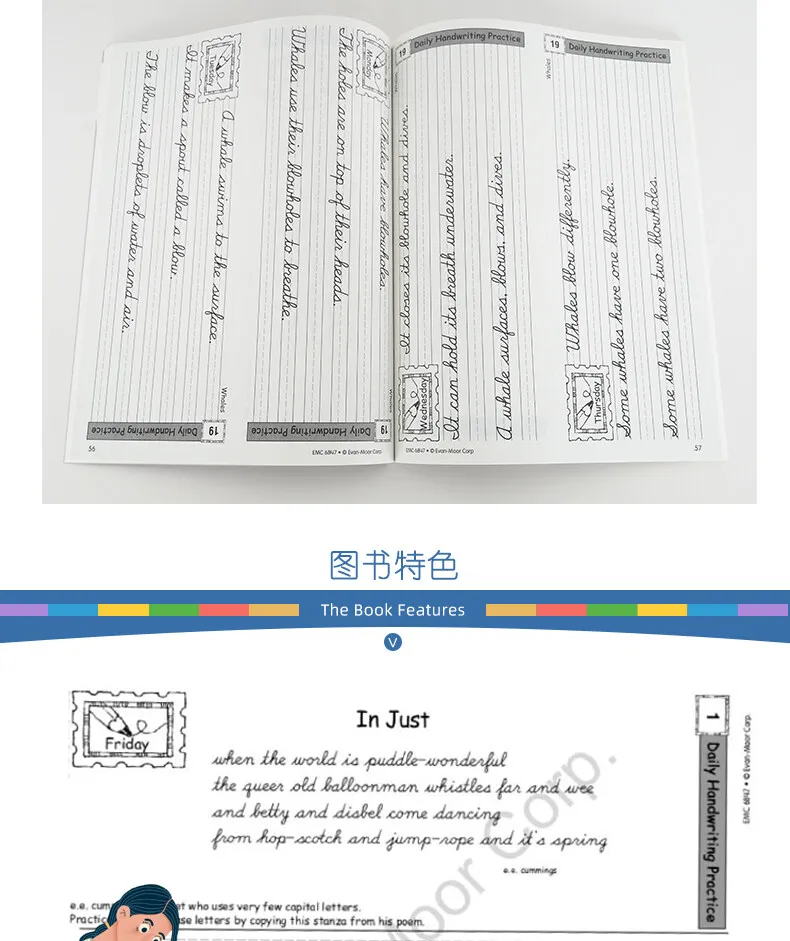 Tuesday
A whale swims to the surface.
It makes a spout called a blow.
The blow is droplets of water and air.
Monday
Whales have blowholes.
The holes are on top of their heads.
Whales use their blowholes to breathe.
Whales
19 Daily Handwriting Practice
19 Daily Handwriting Practice
56
EMC 6847 • © Evan-Moor Corp
19 Daily Handwriting Practice
Whales
Wednesday
It closes its blowhole and dives.
It can hold its breath underwater.
A whale surfaces, blows, and dives.
19 Daily Handwriting Practice
Whales
Thursday
Whales blow differently.
Some whales have one blowhole.
Some whales have two blowholes.
EMC 6847 • © Evan-Moor Corp
57
图书特色
The Book Features
V
Friday
In Just
when the world is puddle-wonderful
the queer old balloonman whistles far and wee
and betty and disbel come dancing
from hop-scotch and jump-rope and it's spring
e.e. cummings
1 Daily Handwriting Practice
EMC 6847 • © Evan-Moor Corp.
Moor Corp.
e.e. who uses very few capital letters.
letters by copying this stanza from his poem.